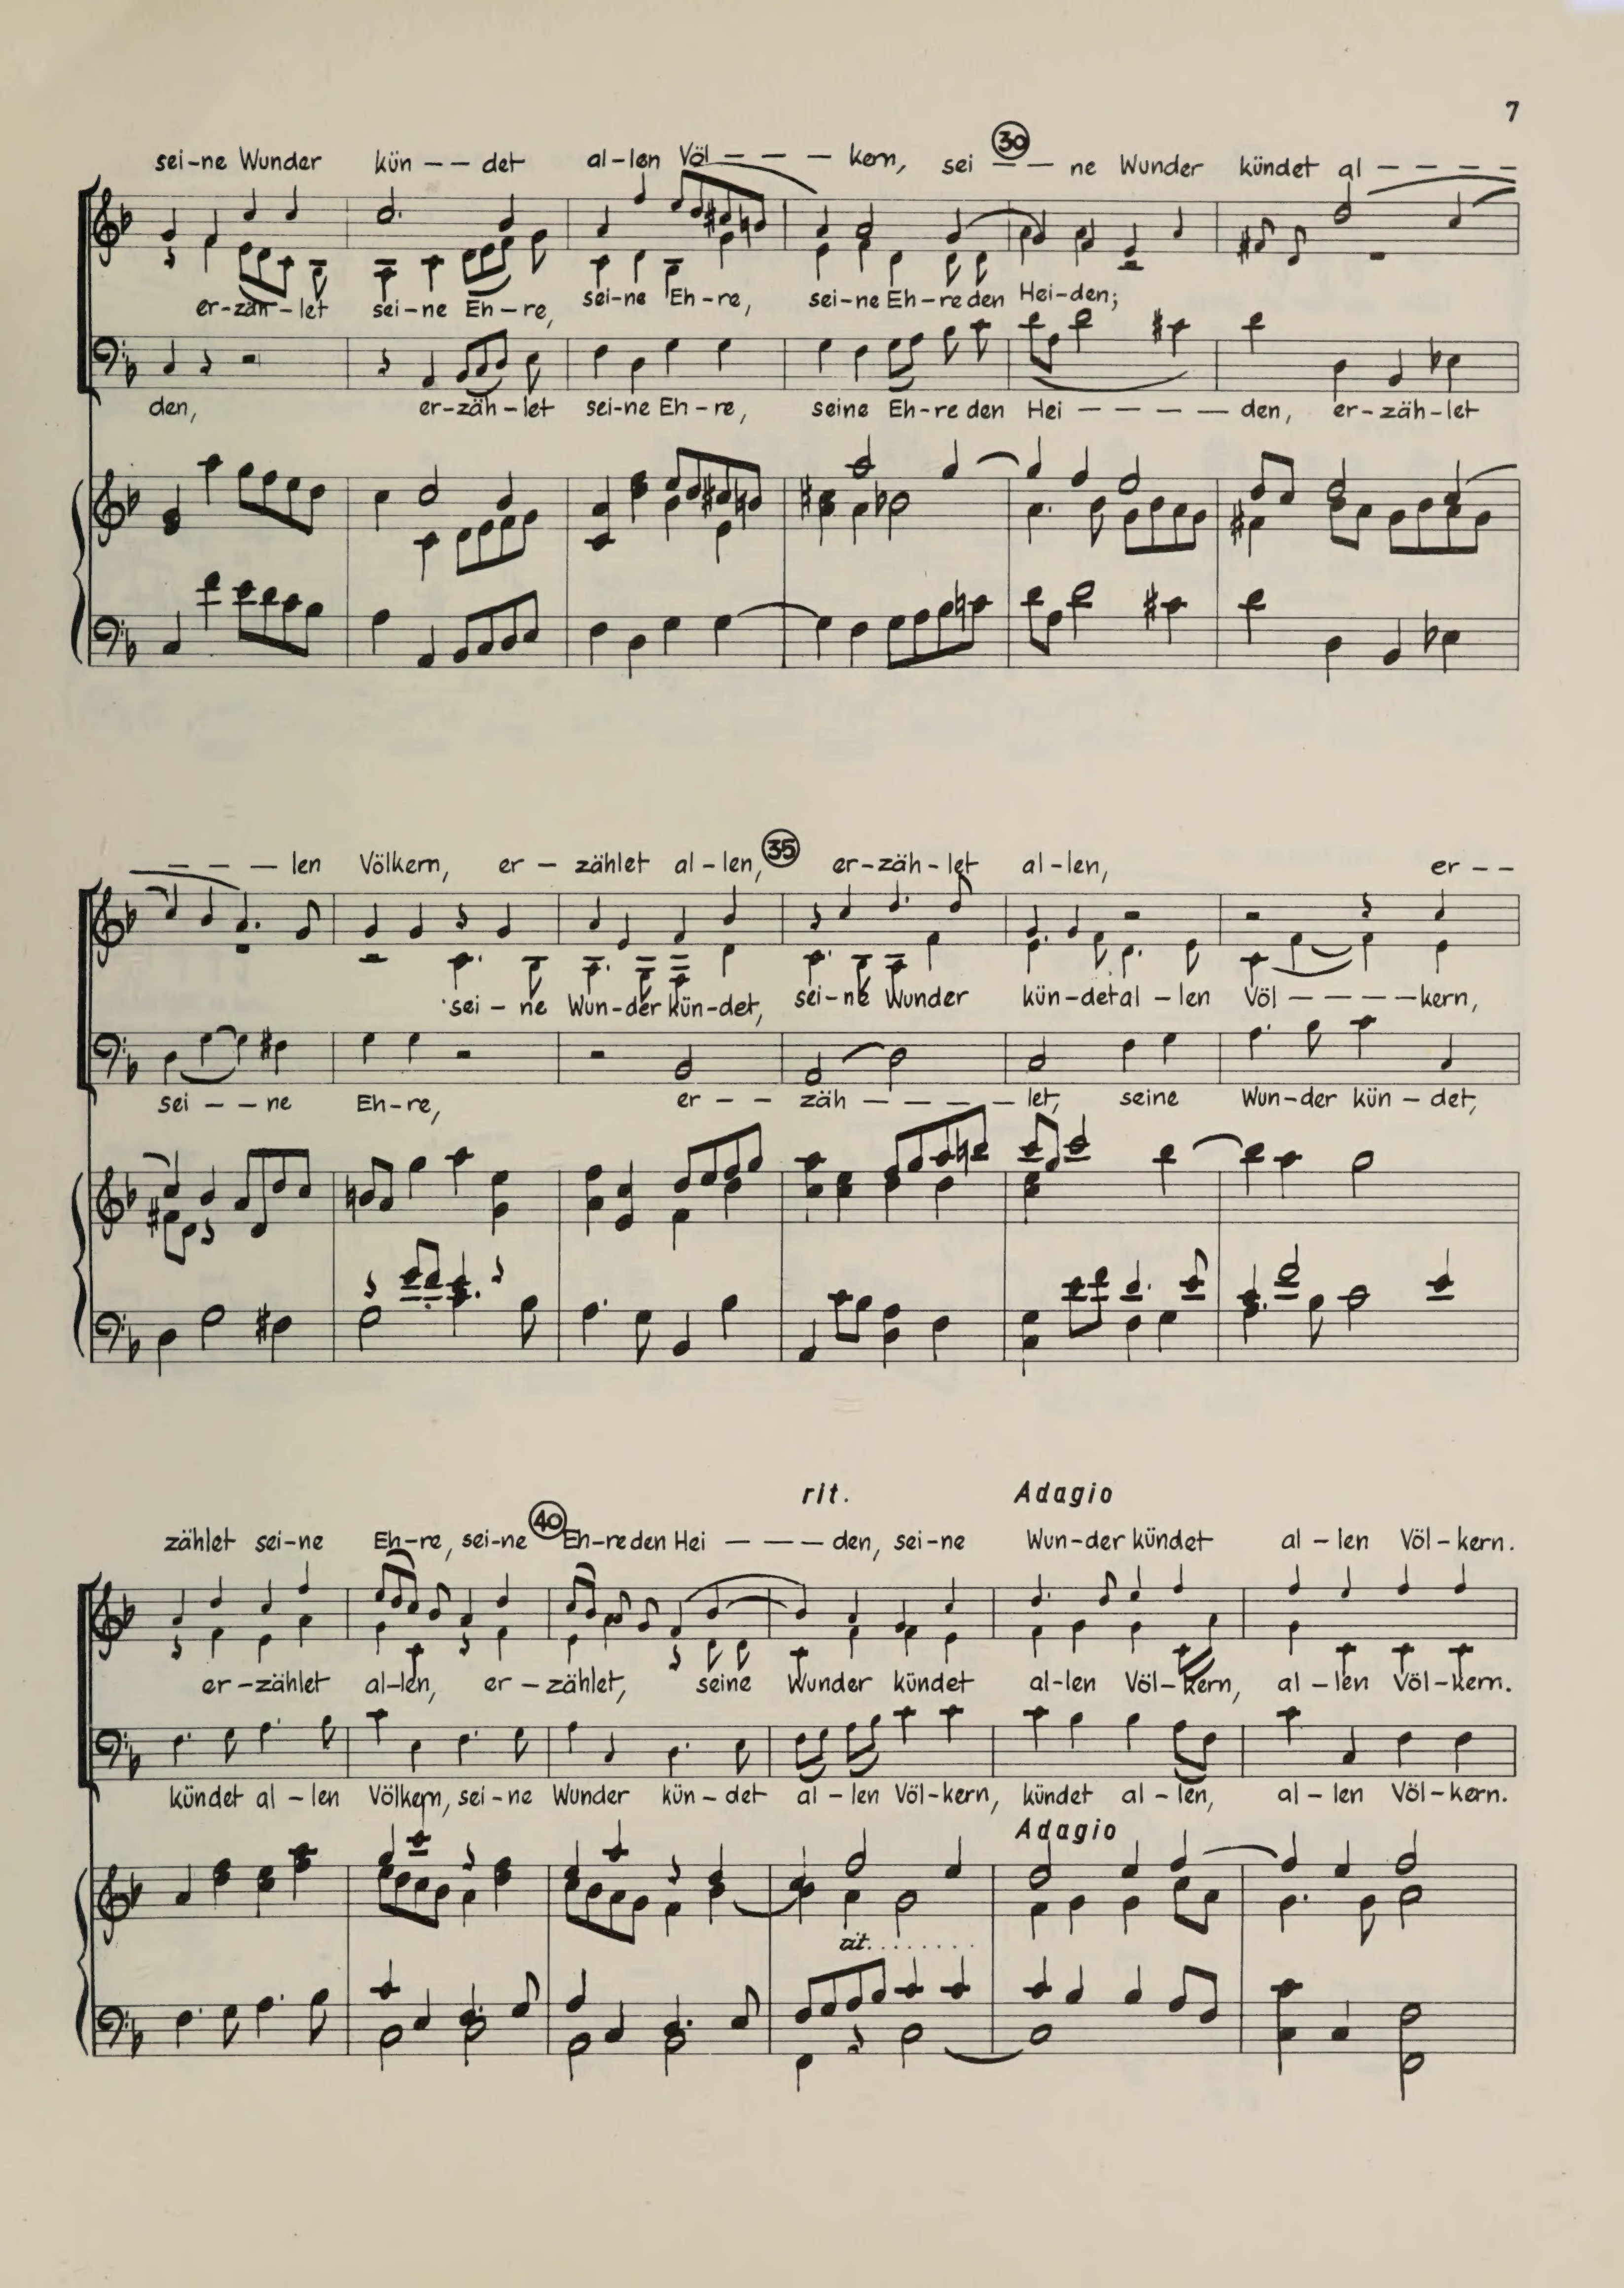 7
sei-ne Wunder kün - - det al-len Völ - - - kern, sei - - ne Wunder kündet al - - - -
30
er-zäh-let sei-ne Eh-re, sei-ne Eh-re, sei-ne Eh-re den Hei-den;
den, er-zäh-let sei-ne Eh-re, seine Eh-re den Hei - - - - den, er-zäh-let
- - - - len Völkern, er - zählet al-len, er-zäh-let al-len, er - -
35
sei - ne Wun-der kün-det, sei-ne Wunder kün-det al - len Völ - - - - kern,
sei - - ne Eh-re, er - - zäh - - - - let, seine Wun-der kün - det,
rit. Adagio
zählet sei-ne Eh-re, sei-ne Eh-re den Hei - - - den, sei-ne Wun-der kündet al - len Völ - kern.
40
er-zählet al-len, er - zählet, seine Wunder kündet al-len Völ-kern, al - len Völ-kern.
kündet al - len Völkern, sei-ne Wunder kün - det al - len Völ-kern, kündet al - len, al - len Völ-kern.
Adagio
rit. . . . . . . .